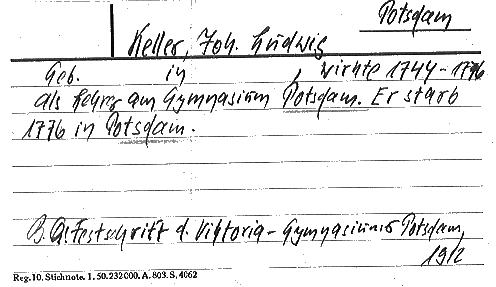 Potsdam
Keller, Joh. Ludwig
Geb. in wirkte 1744-1776
als Lehrer am Gymnasium Potsdam. Er starb
1776 in Potsdam.
Festschrift d. Viktoria-Gymnasiums Potsdam,
1912
Reg. 10. Stichnote. 1. 50. 232000. A. 803. S. 4062